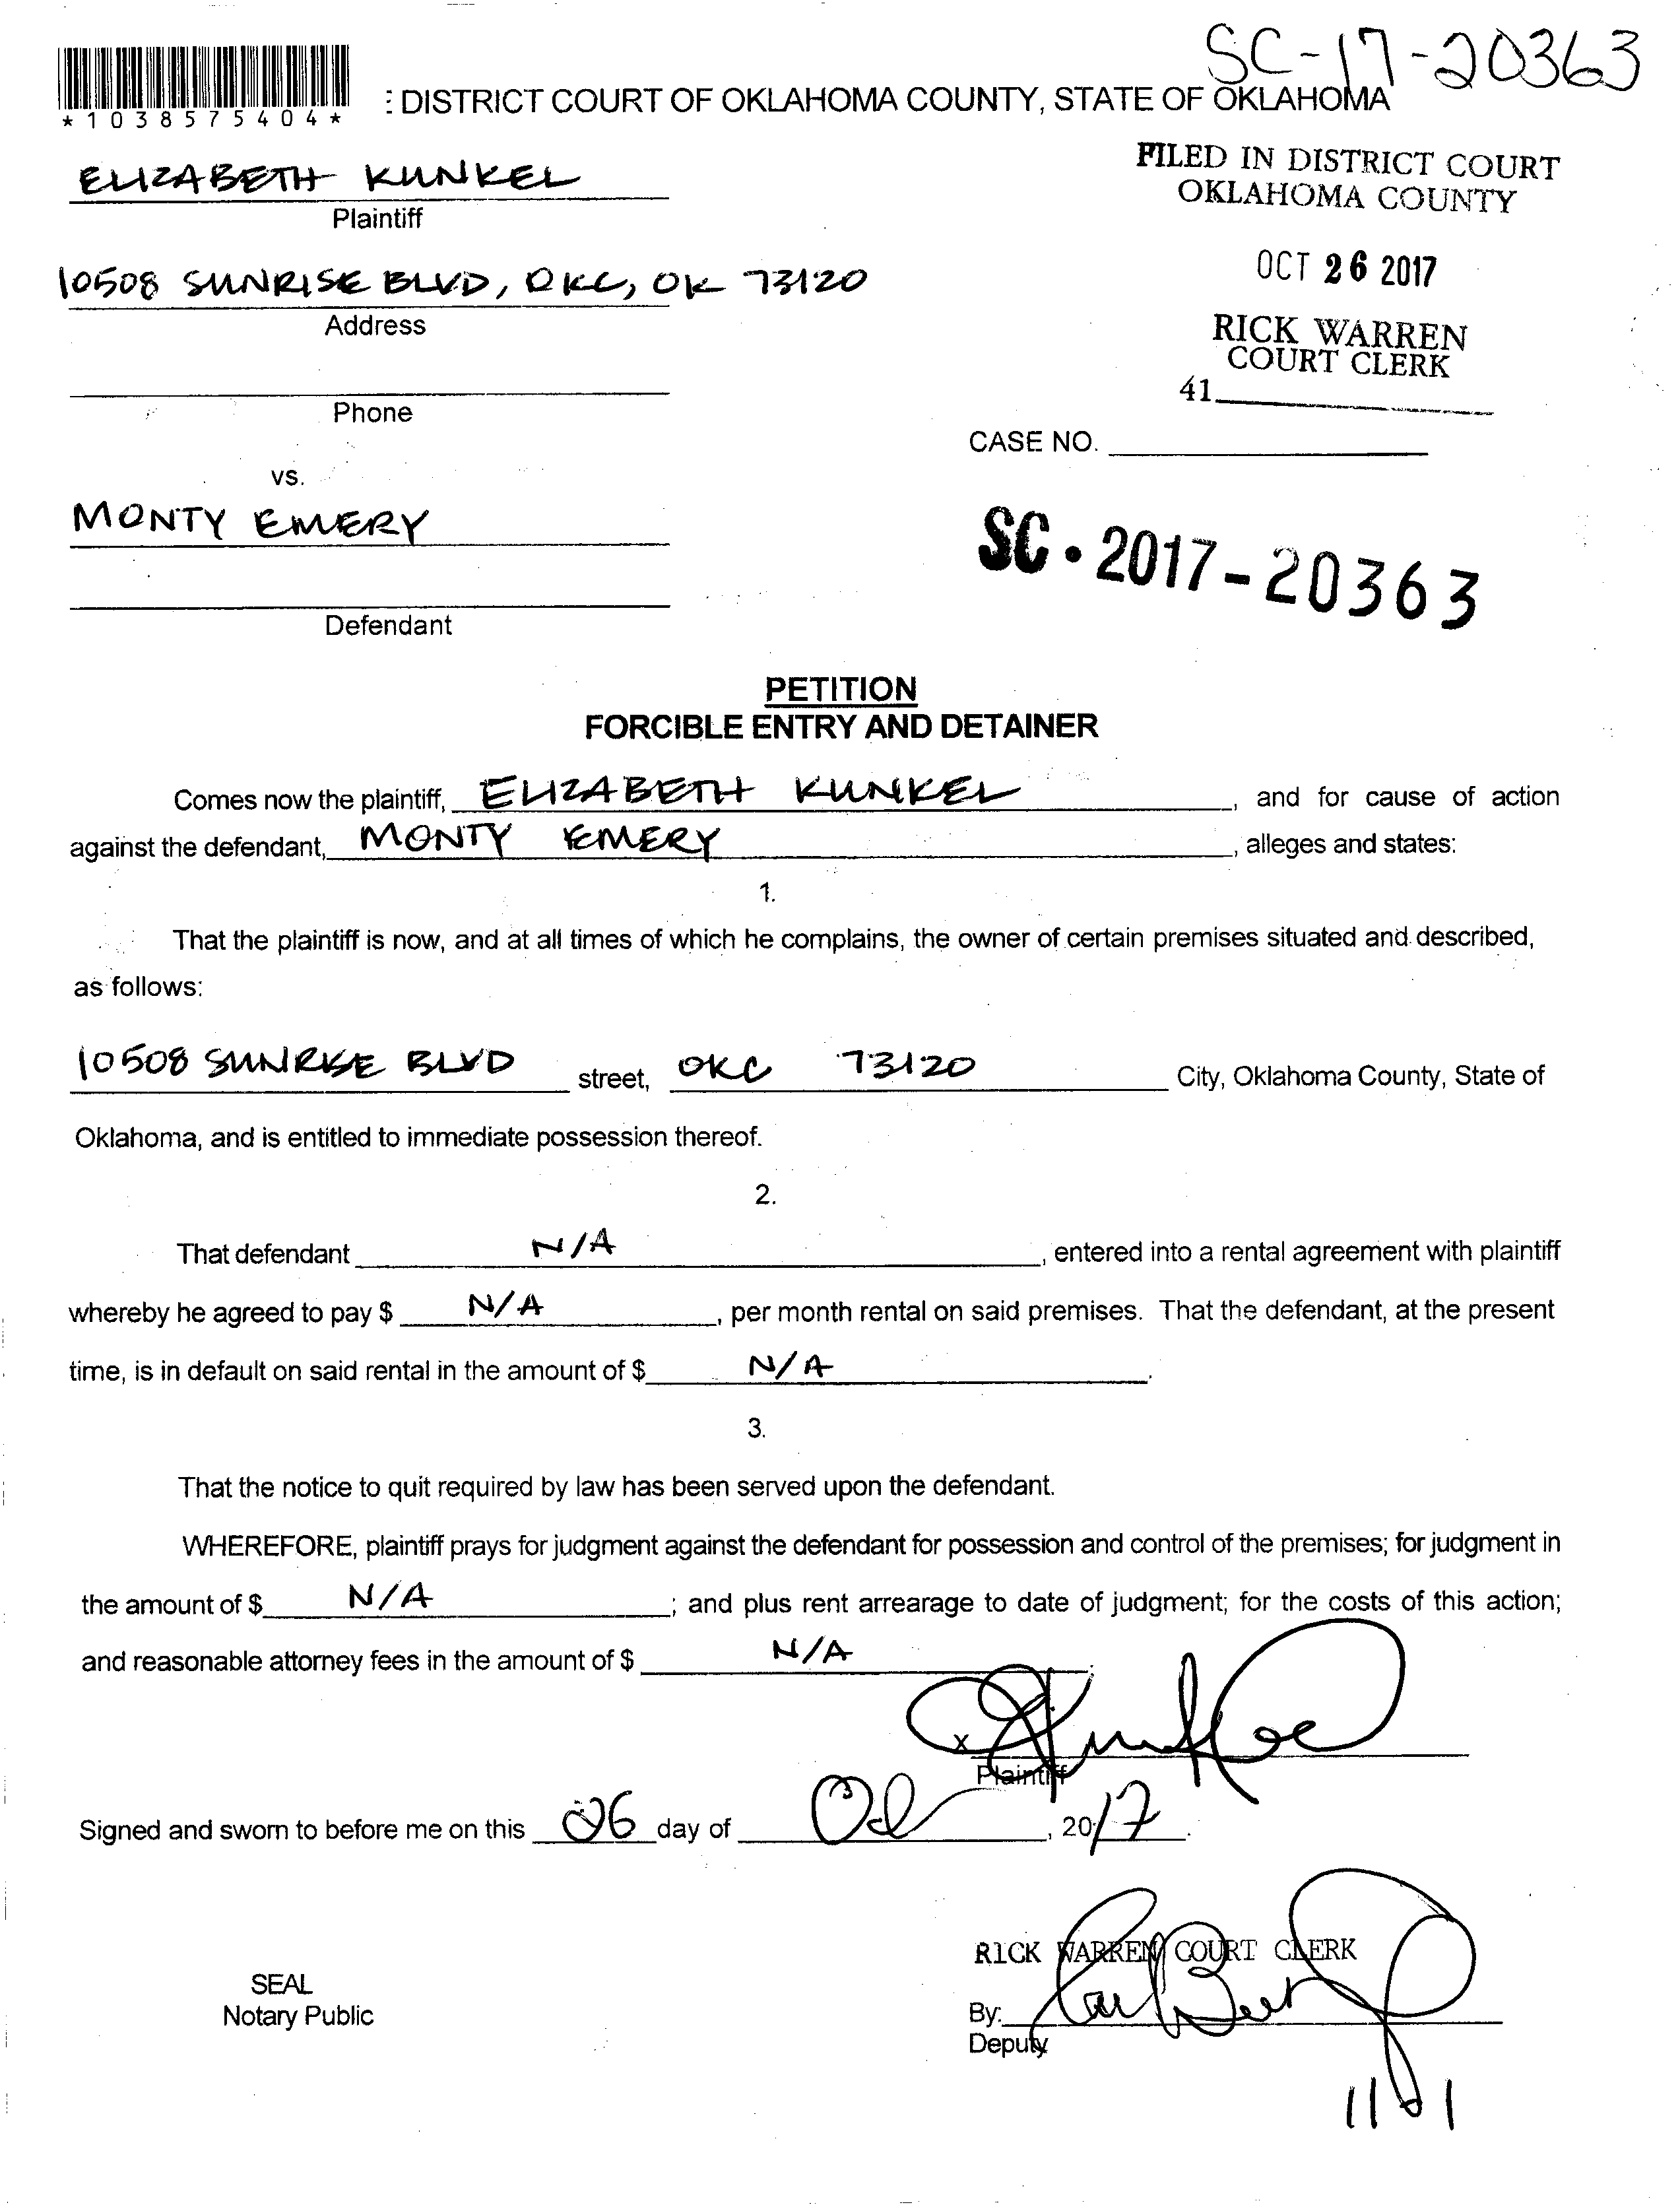 SC-17-20363
*1038575404*
: DISTRICT COURT OF OKLAHOMA COUNTY, STATE OF OKLAHOMA
FILED IN DISTRICT COURT
OKLAHOMA COUNTY
ELIZABETH KUNKEL
Plaintiff
OCT 26 2017
10508 SUNRISE BLVD, OKC, OK 73120
Address
RICK WARREN
COURT CLERK
41
Phone
CASE NO.
vs.
MONTY EMERY
SC·2017-20363
Defendant
PETITION
FORCIBLE ENTRY AND DETAINER
Comes now the plaintiff, ELIZABETH KUNKEL, and for cause of action
against the defendant, MONTY EMERY, alleges and states:
1.
That the plaintiff is now, and at all times of which he complains, the owner of certain premises situated and described,
as follows:
10508 SUNRISE BLVD street, OKC 73120 City, Oklahoma County, State of
Oklahoma, and is entitled to immediate possession thereof.
2.
That defendant N/A, entered into a rental agreement with plaintiff
whereby he agreed to pay $ N/A, per month rental on said premises. That the defendant, at the present
time, is in default on said rental in the amount of $ N/A.
3.
That the notice to quit required by law has been served upon the defendant.
WHEREFORE, plaintiff prays for judgment against the defendant for possession and control of the premises; for judgment in
the amount of $ N/A; and plus rent arrearage to date of judgment; for the costs of this action;
and reasonable attorney fees in the amount of $ N/A.
x
Plaintiff
Signed and sworn to before me on this 26 day of Oct, 2017.
RICK WARREN COURT CLERK
SEAL
Notary Public
By:
Deputy